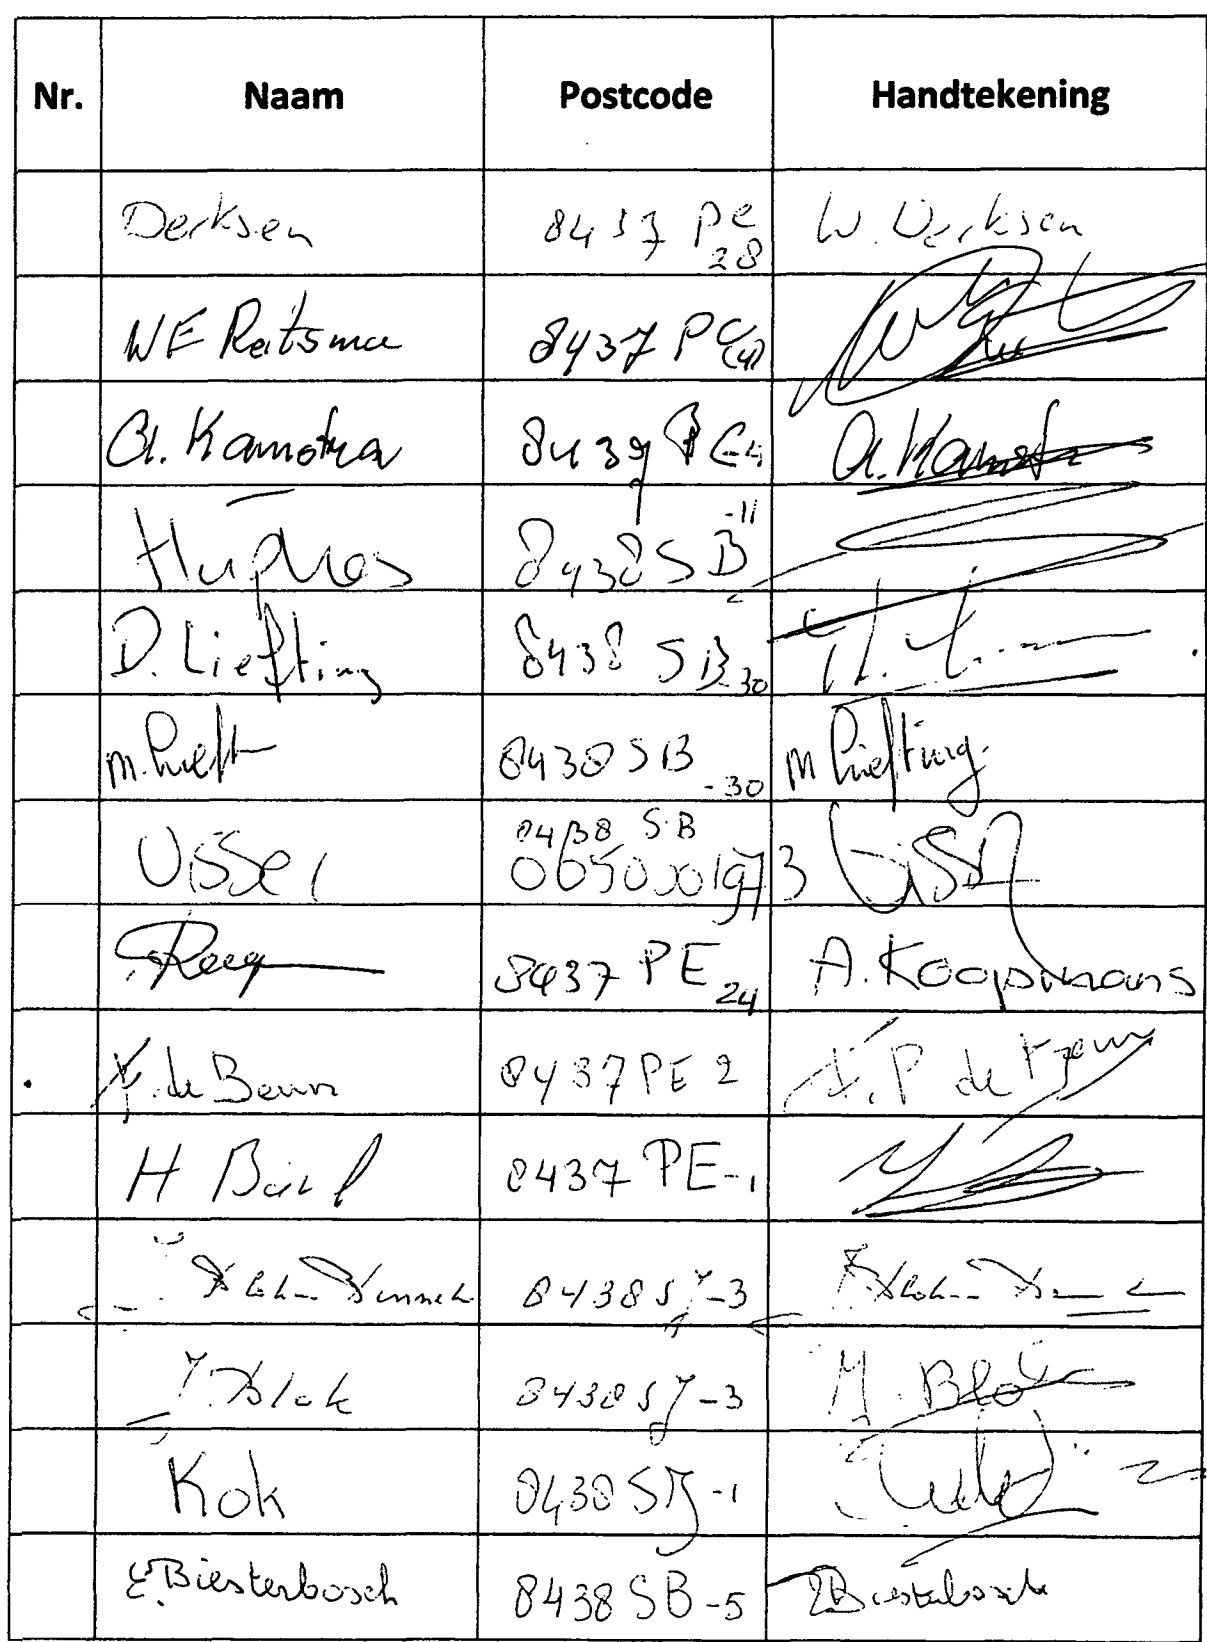 Nr. Naam Postcode Handtekening
Derksen 8437 PE 28 W. Derksen
WF Reitsma 8437 PC (4)
A. Kamstra 8439 PC-4 A. Kamstra
8438 SB -11
D. Liefting 8438 SB -30
M. Lieft 8438 SB -30 M Liefting.
Visser 8438 SB 0650001973 Visser
8437 PE 24 A. Koopmans
de Beun 8437 PE 2 P de
H 8437 PE-1
8438 SJ-3
J. Blok 8438 SJ-3 J. Blok
Kok 8438 SJ -1
E. Biesterbosch 8438 SB -5 EBiesterbosch